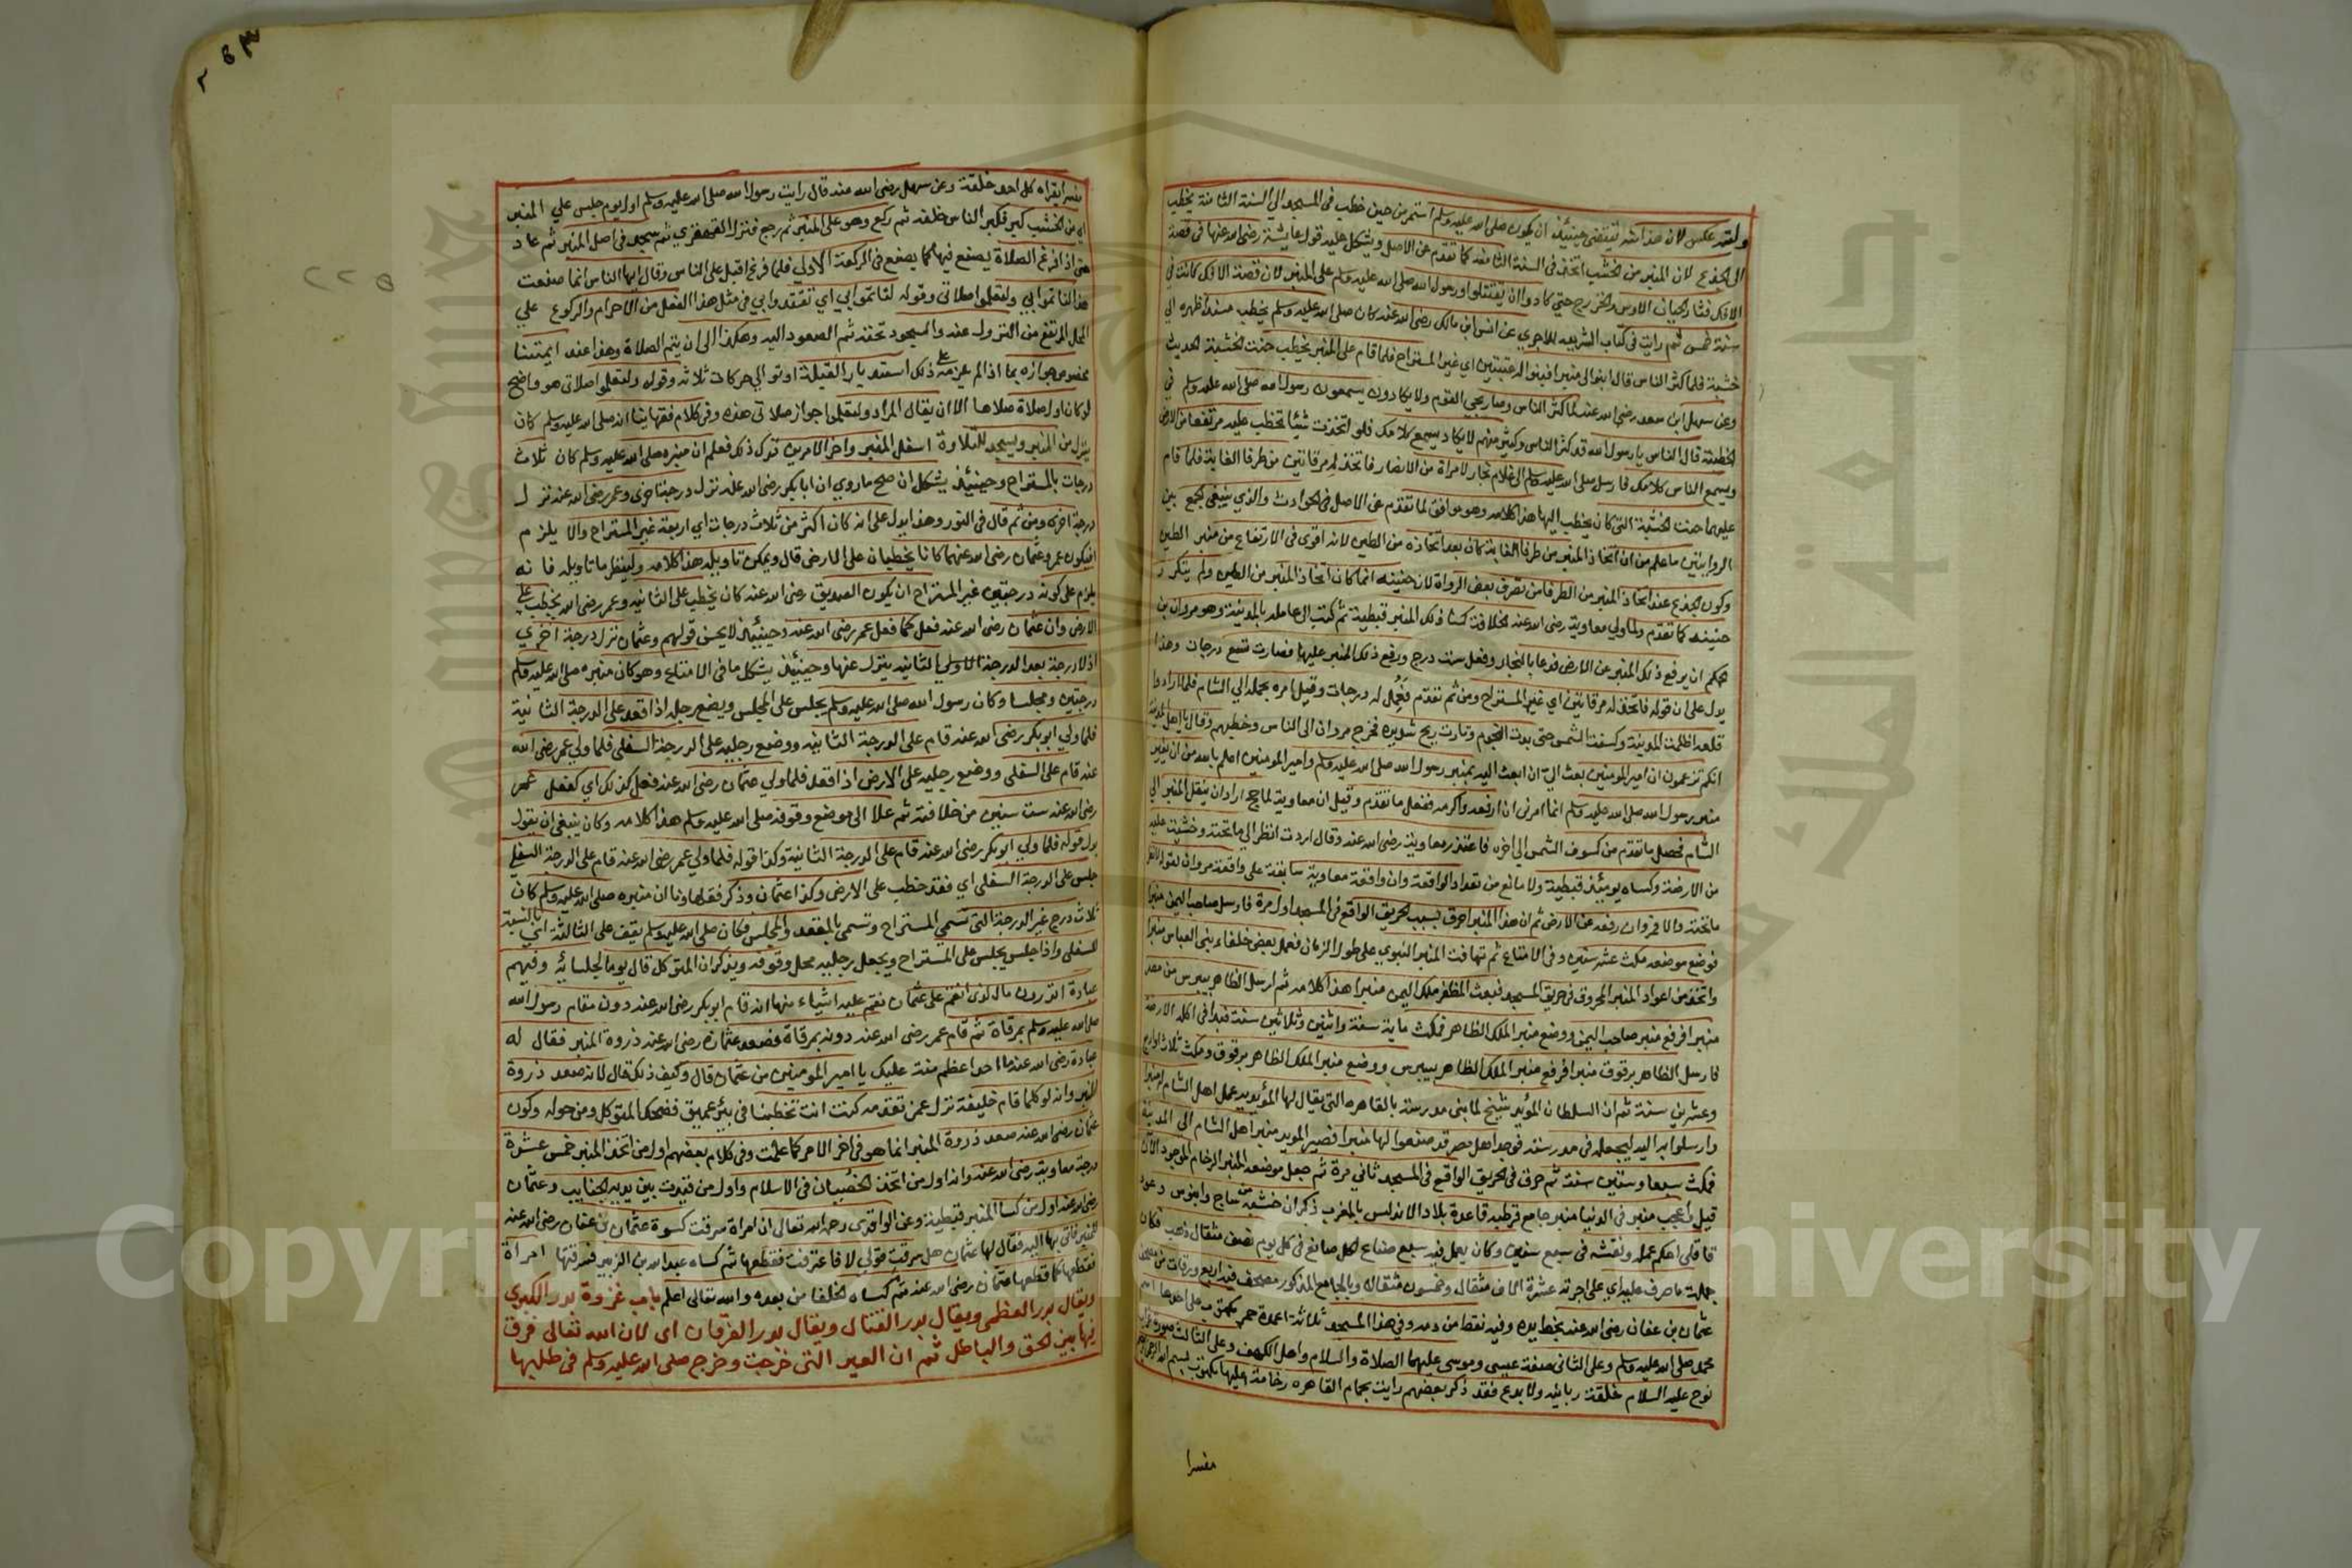 ولقد عكس لان هذا انه تقتضي حينيئذ ان يكون صلى الله عليه وسلم استمر من حين خطب في المسجد الي السنة الثامنة يخطب
الى الجذع لان المنبر من الخشب اتخذ في السنة الثامنة كما تقدم عن الاصل ويشكل عليه قول عايشة رضي الله عنها في قصة
الافك فثار الحيان الاوس والخزرج حتي كادوا ان يقتتلوا ورسول الله صلى الله عليه وسلم على المنبر لان قصة الافك كانت في
سنة خمس ثم رايت في كتاب الشريعه للاجري عن انس ابن مالك رضي الله عنه كان صلى الله عليه وسلم يخطب مسندا ظهره الي
خشبة فلما كثر الناس قال ابنوا لى منبرا فبنوا له عتبتين اي غير المستراح فلما قام على المنبر يخطب حنت الخشبة الحديث
وعن سهل ابن سعد رضي الله عنه لما كثر الناس وصار يجي القوم ولا يكادون يسمعون رسول الله صلى الله عليه وسلم في
الخطبة قال الناس يا رسول الله قد كثر الناس وكثير منهم لا يكاد يسمع كلامك فلو اتخذت شيئا تخطب عليه مرتفعا من الارض
ويسمع الناس كلامك فارسل صلى الله عليه وسلم الى غلام نجار لامراة من الانصار فاتخذ له مرقاتين من طرفا الغابة فلما قام
عليهما حنت الخشبة التى كان يخطب اليها هذا كلامه وهو موافق لما تقدم عن الاصل في الحوادث والذي ينبغي الجمع بين
الروايتين ما علم من ان اتخاذ المنبر من طرفا الغابة كان بعد اتخاذه من الطين لانه اقوى في الارتفاع من منبر الطين
وكون الجذع عند اتخاذ المنبر من الطرفا من تصرف بعض الرواة لان حنينه انما كان اتخاذ المنبر من الطين ولم يتكرر
حنينه كما تقدم ولما ولي معاوية رضي الله عنه الخلافة كسا ذلك المنبر قبطية ثم كتب الى عامله بالمدينة وهو مروان بن
الحكم ان يرفع ذلك المنبر عن الارض فدعا بالنجار وفعل ست درج ورفع ذلك المنبر عليها فصارت تسع درجات وهذا
يدل على ان قوله فاتخذ له مرقاتين اي غير المستراح ومن ثم تقدم فعمل له درجات وقيل امره بحمله الي الشام فلما ارادوا
قلعه اظلمت المدينة وكسفت الشمس حتى بدت النجوم وثارت ريح شديدة فخرج مروان الى الناس وخطبهم وقال يا اهل المدينة
انكم تزعمون ان امير المومنين بعث اليّ ان ابعث اليه بمنبر رسول الله صلى الله عليه وسلم وامير المومنين اعلم بالله من ان يغير
منبر رسول الله صلى الله عليه وسلم انما امرني ان ارفعه واكرمه ففعل ما تقدم وقيل ان معاوية لما حج اراد ان ينقل المنبر الي
الشام فحصل ما تقدم من كسوف الشمس الى اخره فاعتذر معاوية رضي الله عنه وقال اردت انظر الى ما تحته وخشيت عليه
من الارضة وكساه يوميئذ قبطية ولا مانع من تعداد الواقعة وان واقعة معاوية سابقة على واقعة مروان لقوله انظر
ما تحته والا فمروان رفعه عن الارض ثم ان هذا المنبر احرق بسبب الحريق الواقع في المسجد اول مرة فارسل صاحب اليمن منبرا
فوضع موضعه مكث عشر سنين وفى الامتاع ثم تهافت المنبر النبوي على طول الزمان فعمل بعض خلفاء بنى العباس منبرا
واتخذ من اعواد المنبر المحروق في حريق المسجد فبعث المظفر ملك اليمن منبرا هذا كلامه ثم ارسل الظاهر بيبرس من مصر
منبرا فرفع منبر صاحب اليمن ووضع منبر الملك الظاهر فمكث ماية سنة واثنين وثلاثين سنة فبدا فى اكله الارضة
فارسل الظاهر برقوق منبرا فرفع منبر الملك الظاهر بيبرس ووضع منبر الملك الظاهر برقوق ومكث ثلاثا
وعشرين سنة ثم ان السلطان المؤيد شيخ لما بنى مدرسته بالقاهره التي يقال لها المؤيديه عمل اهل الشام له منبرا
وارسلوا به اليه ليجعله فى مدرسته فوجد اهل مصر قد صنعوا لها منبرا فصير المويد منبر اهل الشام الى المدينة
فمكث سبعا وستين سنة ثم حرق في الحريق الواقع فى المسجد ثاني مرة ثم جعل موضعه المنبر الرخام الموجود الآن
قيل واعجب منبر في الدنيا منبر جامع قرطبه قاعدة بلاد الاندلس بالمغرب ذكر ان خشبه من ساج وابنوس وعود
قاقلى احكم عمله ونقشه فى سبع سنين وكان يعمل فيه سبع صناع لكل صانع في كل يوم نصف مثقال ذهب فكان
جملة ما صرف عليه اي على اجرته عشرة الاف مثقال وخمسون مثقالا وبالجامع المذكور مصحف فيه اربع ورقات من مصحف
عثمان بن عفان رضي الله عنه بخط يده وفيه نقط من دمه وفي هذا المسجد ثلاثة اعمدة حمر مكتوب على احدها اسم
محمد صلى الله عليه وسلم وعلى الثانى صفة عيسى وموسى عليهما الصلاة والسلام واهل الكهف وعلى الثالث صورة غراب
نوح عليه السلام خلقة ربانيه ولا بدع فقد ذكر بعضهم رايت بحمام القاهره رخامة عليها مكتوب بسم الله الرحمن الرحيم
مفسرا
مفسرا يقراه كل احد خلقة وعن سهل رضي الله عنه قال رايت رسول الله صلى الله عليه وسلم اول يوم جلس علي المنبر
اي من الخشب كبر فكبر الناس خلفه ثم ركع وهو على المنبر ثم رجع فنزل القهقري ثم سجد فى اصل المنبر ثم عاد
حتى اذا فرغ الصلاة يصنع فيها كما يصنع فى الركعة الاولي فلما فرغ اقبل على الناس وقال ايها الناس انما صنعت
هذا لتاتموا بي ولتعلموا صلاتى وقوله لتاتموا بي اي تقتدوا بي في مثل هذا الفعل من الاحرام والركوع علي
المحل المرتفع من النزول عنه والسجود تحته ثم الصعود اليه وهكذا الى ان يتم الصلاة وهذا عند ايمتنا
مخصوص جوازه بما اذا لم يلزم على ذلك استدبار القبلة او توالى حركات ثلاثه وقوله ولتعلموا صلاتي هو واضح
لو كان اول صلاة صلاها الا ان يقال المراد ولتعلموا جواز صلاتى هذه وفى كلام فقهاينا انه صلى الله عليه وسلم كان
ينزل من المنبر ويسجد للتلاوة اسفل المنبر واخر الامرين ترك ذلك فعلم ان منبره صلى الله عليه وسلم كان ثلاث
درجات بالمستراح وحينيئذ يشكل ان صح ما روي ان ابا بكر رضى الله عنه نزل درجة اخرى وعمر رضى الله عنه نزل
درجة اخرى ومن ثم قال فى النور وهذا يدل على انه كان اكثر من ثلاث درجات اي اربعة غير المستراح والا يلزم
ان يكون عمر وعثمان رضى الله عنهما كانا يخطبان على الارض قال ويمكن تاويله هذا كلامه ولينظر ما تاويله فانه
يلزم على كونه درجتين غير المستراح ان يكون الصديق رضى الله عنه كان يخطب على الثانية وعمر رضى الله يخطب على
الارض وان عثمان رضى الله عنه فعل كما فعل عمر رضى الله عنه وحينيئذ لا يحسن قولهم وعثمان نزل درجة اخري
اذ لا درجة بعد الدرجة الاولى يالثانيه ينزل عنها وحينيئذ يشكل ما فى الامتاع وهو كان منبره صلى الله عليه وسلم
درجتين ومجلسا وكان رسول الله صلى الله عليه وسلم يجلس على المجلس ويضع رجليه اذا قعد على الدرجة الثانية
فلما ولي ابو بكر رضى الله عنه قام على الدرجة الثانيه ووضع رجليه على الدرجة السفلى فلما ولي عمر رضى الله
عنه قام على السفلى ووضع رجليه على الارض اذا قعد فلما ولي عثمان رضى الله عنه فعل كذلك اي كفعل عمر
رضى الله عنه ست سنين من خلافته ثم علا الى موضع وقوفه صلى الله عليه وسلم هذا كلامه وكان ينبغى ان يقول
بدل قوله فلما ولي ابو بكر رضى الله عنه قام على الدرجة الثانية وكذا قوله فلما ولي عمر رضى الله عنه قام على الدرجة السفلى
جلس على الدرجة السفلى اي فقد خطب على الارض وكذا عثمان وذكر فقهاونا ان منبره صلى الله عليه وسلم كان
ثلاث درج غير الدرجة التى تسمى المستراح وتسمى بالمقعد والمجلس فكان صلى الله عليه وسلم يقف على الثالثة اي بالنسبة
للسفلى واذا جلس يجلس على المستراح ويجعل رجليه محل وقوفه ويذكر ان المتوكل قال يوما لجلسائه وفيهم
عبادة اتدرون ما الذى انقم على عثمان نقم عليه اشياء منها انه قام ابو بكر رضى الله عنه دون مقام رسول الله
صلى الله عليه وسلم بمرقاة ثم قام عمر رضى الله عنه دونه بمرقاة فصعد عثمان رضى الله عنه ذروة المنبر فقال له
عبادة رضى الله عنه ما احد اعظم منة عليك يا امير المومنين من عثمان قال وكيف ذلك قال لانه صعد ذروة
المنبر وانه لو كلما قام خليفة نزل عمن تقدمه كنت انت تخطبنا في بئر عميق فضحك المتوكل ومن حوله وكون
عثمان رضى الله عنه صعد ذروة المنبر انما هو في اخر الامر كما علمت وفى كلام بعضهم اول من اتخذ المنبر خمس عشرة
درجة معاوية رضى الله عنه وانه اول من اتخذ الخصيان فى الاسلام واول من قيدت بين يديه الجنايب وعثمان
رضى الله عنه اول من كسا المنبر قبطية وعن الواقدى رحمه الله تعالى ان امراة سرقت كسوة عثمان بن عفان رضى الله عنه
للمنبر فاتى بها اليه فقال لها عثمان هل سرقت قولى لا فاعترفت فقطعها ثم كساه عبد الله بن الزبير فسرقتها امراة
فقطعها كما قطعها عثمان رضى الله عنه ثم كساه الخلفا من بعده والله تعالى اعلم باب غزوة بدر الكبري
ويقال بدر العظمى ويقال بدر القتال ويقال بدر الفرقان اى لان الله تعالى فرق
فيها بين الحق والباطل ثم ان العير التى خرجت وخرج صلى الله عليه وسلم فى طلبها
٢٢٥
Copyright © King Saud University
جامعة الملك سعود